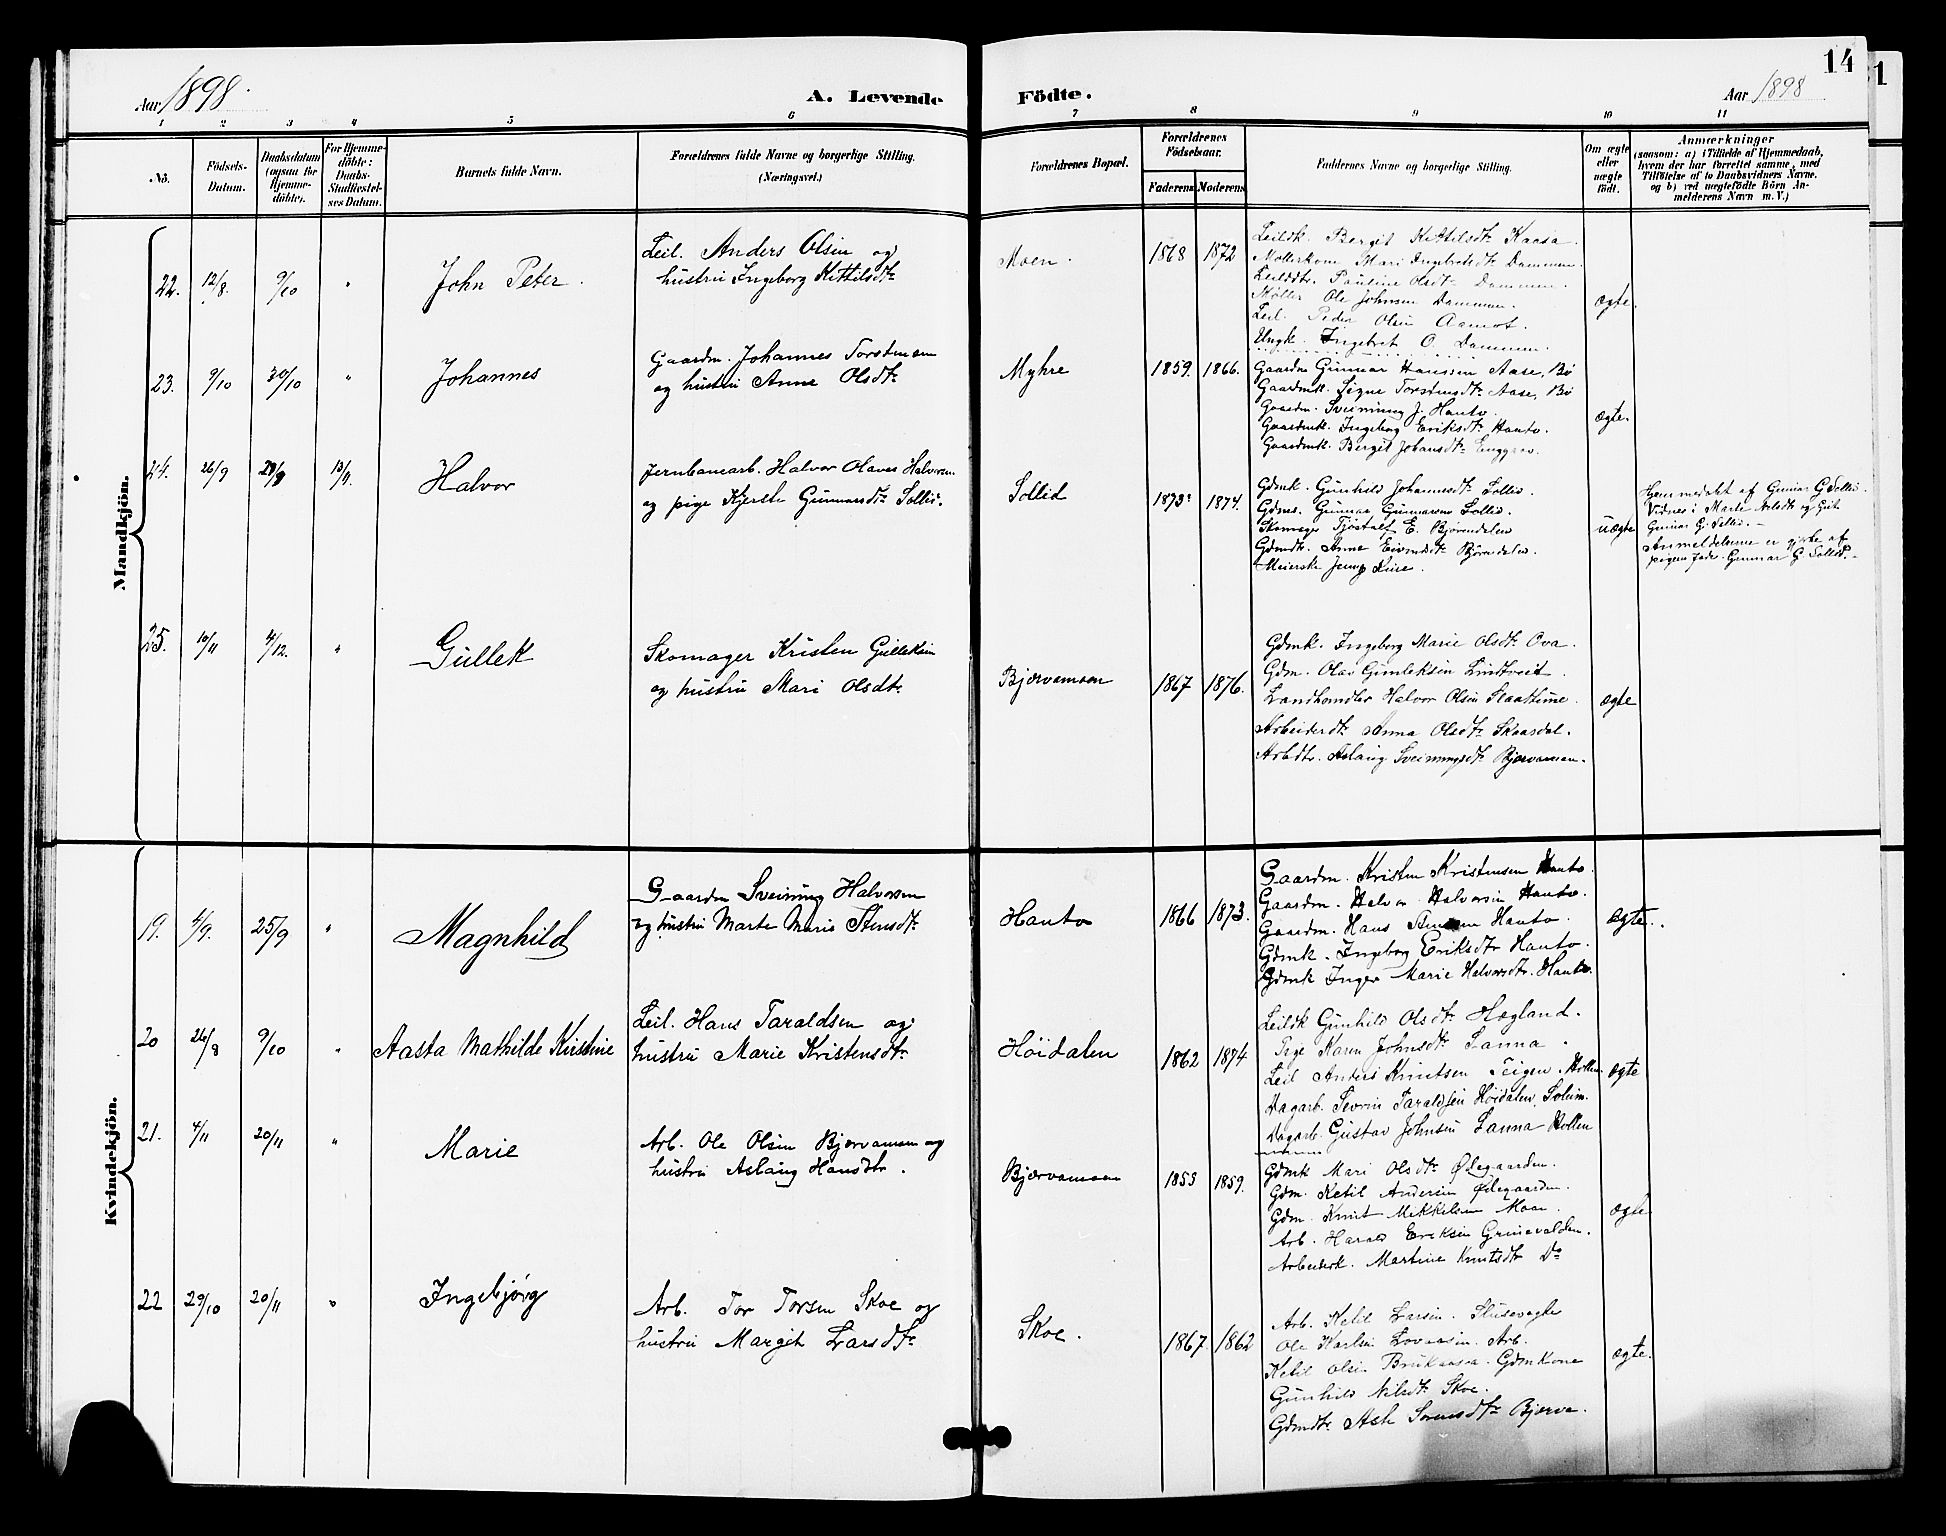 14
Aar 1898.
A. Levende Födte.
Aar 1898
1 2 3 4 5 6 7 8 9 10 11
No.
Födsels-
Datum.
Daabsdatum
(ogsaa for
Hjemme-
döbte).
For Hjemme-
döbte:
Daabs-
Stadfæstel-
ses Datum.
Barnets fulde Navn.
Forældrenes fulde Navne og borgerlige Stilling.
(Næringsvei.)
Forældrenes Bopæl.
Forældrenes
Födselsaar.
Faderens Moderens
Faddernes Navne og borgerlige Stilling.
Om ægte
eller
uægte
födt.
Anmærkninger
(saasom: a) i Tilfælde af Hjemmedaab,
hvem der har forrettet samme, med
Tilföielse af to Daabsvidners Navne,
og b) ved uægtefödte Börn An-
melderens Navn m. V.)
Mandkjön.
22. 12/8. 9/10 " John Peter.
Leil. Anders Olsen og
hustru Ingeborg Kittilsdtr
Moen.
1868 1872
Leildk. Bergit Kittilsdtr Kaasa.
Møllerkone Mari Ingebretsdtr Dammen.
Leilddtr. Pauline Olsdtr Dammen.
Møller Ole Johnsen Dammen.
Leil. Peder Olsen Aamot.
Ungk. Ingebret O. Dammen.
ægte.
23. 9/10 30/10 " Johannes
Gaardm. Johannes Torstensen
og hustru Anne Olsdtr
Myhre
1859. 1866.
Gaardm Gunnar Hanssen Aase, Bø
Gaardmk. Signe Torstensdtr Aase, Bø
Gaardm. Sveinung J. Hanto.
Gaardmk. Ingeborg Eriksdtr Hanto.
Gaardmk. Bergit Johansdtr Enggrav.
ægte.
24. 26/9 29/9 13/11. Halvor
Jernbanearb. Halvor Olaves Halvorsen
og pige Kjersti Gunnarsdtr Sollid.
Sollid
1873 1874.
Gdmk. Gunhild Johannesdtr Sollid.
Gdmes. Gunnar Gunnarsen Sollid.
Skomager Tjøstolf E. Bjørndalen
Gdmdtr. Anne Eivindsdtr Bjørndalen.
Meierske Jenny Kise.
uægte
Hjemmedøbt af Gunnar G. Sollid.
Vidnes: Marte Nilsdtr og Gut
Gunnar G. Sollid.-
Anmeldelserne er gjorte af
pigens fader Gunnar G Sollid.-
25. 10/11 4/12. " Gullek
Skomager Kristen Gulleksen
og hustru Mari Olsdtr
Bjervamoen
1867 1876.
Gdmk. Ingeborg Marie Olsdtr Ova.
Gdm. Olav Gunleksen Lindtveit.
Landhandler Halvor Olsen Slaattune.
Arbeiderdtr Anna Olsdtr Skaasdal.
Arbdtr. Aslaug Sveinungsdtr Bjervamoen.
ægte
Kvindekjön.
19. 4/9. 25/9 " Magnhild
Gaardm Sveinung Halvorsen
og hustru Marte Marie Stensdtr
Hanto
1866 1873.
Gaardm. Kristen Kristensen Hanto.
Gaardm. Halvor Halvorsen Hanto.
Gaardm. Hans Stensen Hanto.
Gdmk. Ingeborg Eriksdtr Hanto.
Gdmk Inger Marie Halvorsdtr. Hanto.
ægte.
20 26/8 9/10 " Aasta Mathilde Kirstine
Leil. Hans Taraldsen og
hustru Marie Kristensdtr
Höidalen
1862 1874
Leildk Gunhild Olsdtr Hægland.
Pige Karen Johnsdtr Lanna.
Leil Anders Knutsen Teigen. Hollen.
Dagarb. Sevrin Taraldsen Höidalen, Solum.
Dagarb. Gustav Johnsen Lanna Hollen
ægte
21. 4/11 20/11 " Marie
Arb. Ole Olsen Bjervamoen og
hustru Aslaug Hansdtr.
Bjervamoen
1853 1859.
Gdmk Mari Olsdtr Ødegaarden.
Gdm. Ketil Andersen Ødegaarden.
Gdm. Knut Mikkelsen Moen.
Arb. Harald Eriksen Grinevalden.
Arbeiderk. Martine Knutsdtr Do
ægte
22 29/10 20/11 " Ingebjörg
Arb. Tor Torsen Skoe og
hustru Margit Larsdtr
Skoe.
1867. 1862
Arb. Ketil Larsen. Slusevogter
Ole Karlsen Lovaasen. Arb.
Ketil Olsen Brukaasa. Gdmkone
Gunhild Nilsdtr. Skoe.
Gdmdtr. Asl. Sorensdtr Bjerva.
ægte.